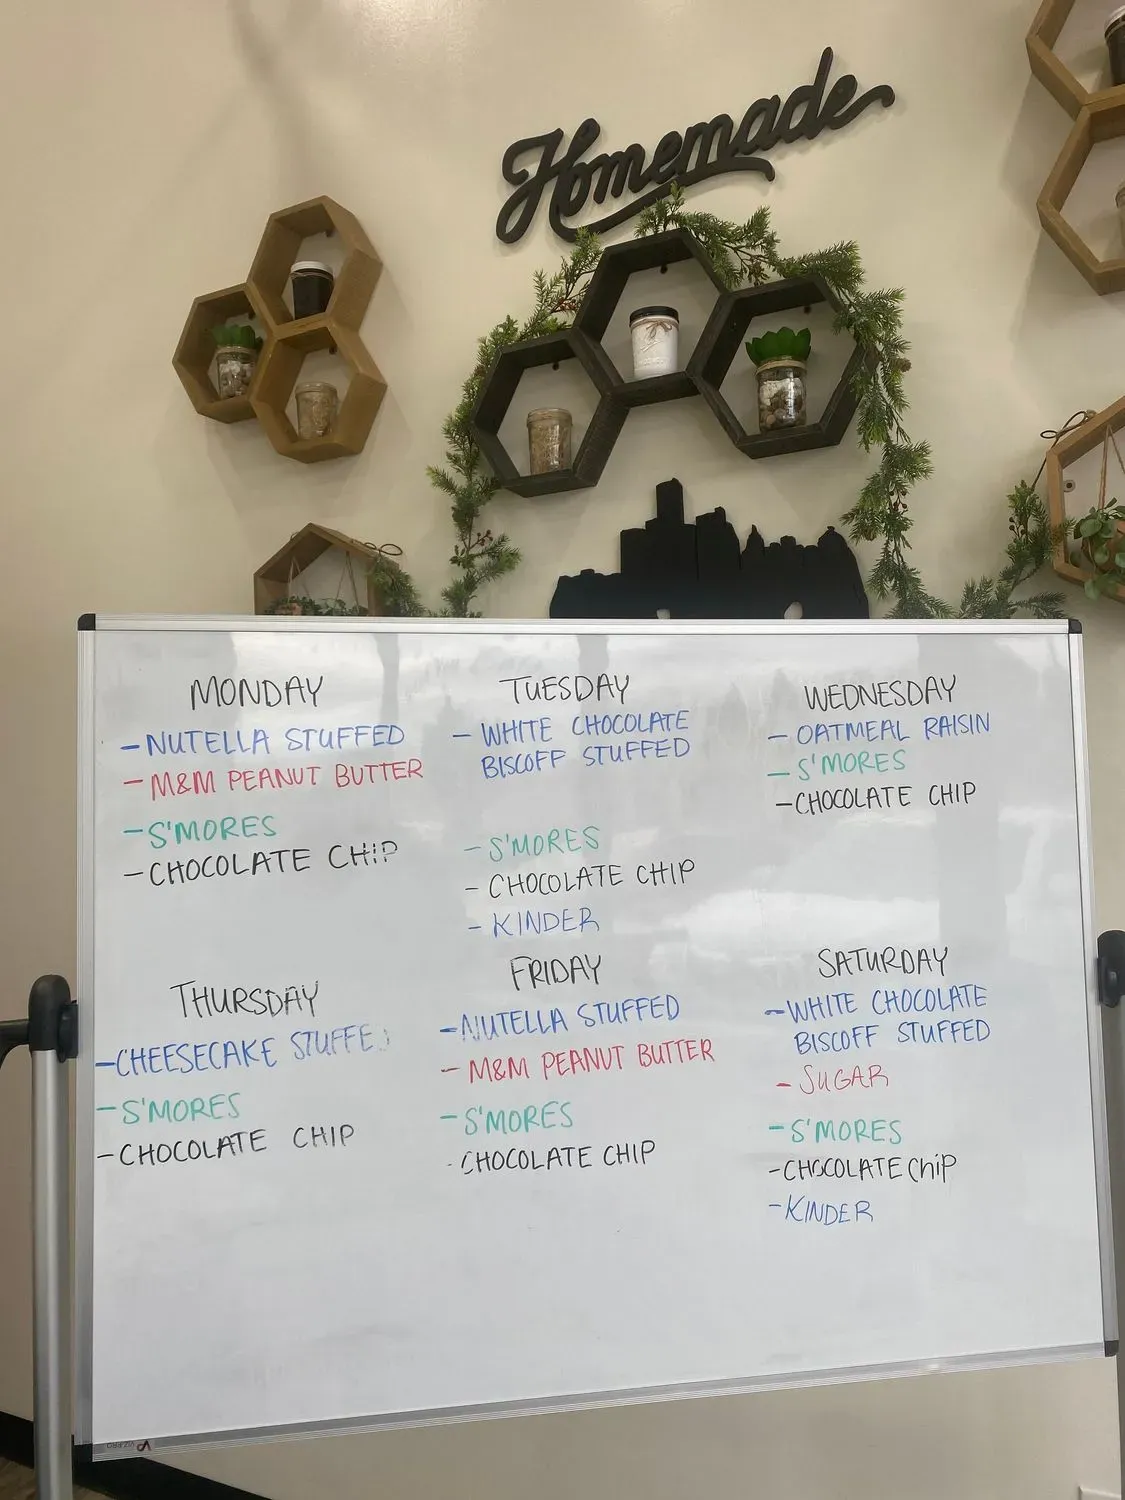 Homemade
MONDAY
- NUTELLA STUFFED
- M&M PEANUT BUTTER
- S'MORES
- CHOCOLATE CHIP
TUESDAY
- WHITE CHOCOLATE
BISCOFF STUFFED
- S'MORES
- CHOCOLATE CHIP
- KINDER
WEDNESDAY
- OATMEAL RAISIN
- S'MORES
- CHOCOLATE CHIP
THURSDAY
- CHEESECAKE STUFFED
- S'MORES
- CHOCOLATE CHIP
FRIDAY
- NUTELLA STUFFED
- M&M PEANUT BUTTER
- S'MORES
- CHOCOLATE CHIP
SATURDAY
- WHITE CHOCOLATE
BISCOFF STUFFED
- SUGAR
- S'MORES
- CHOCOLATE Chip
- KINDER
VIZ-PRO